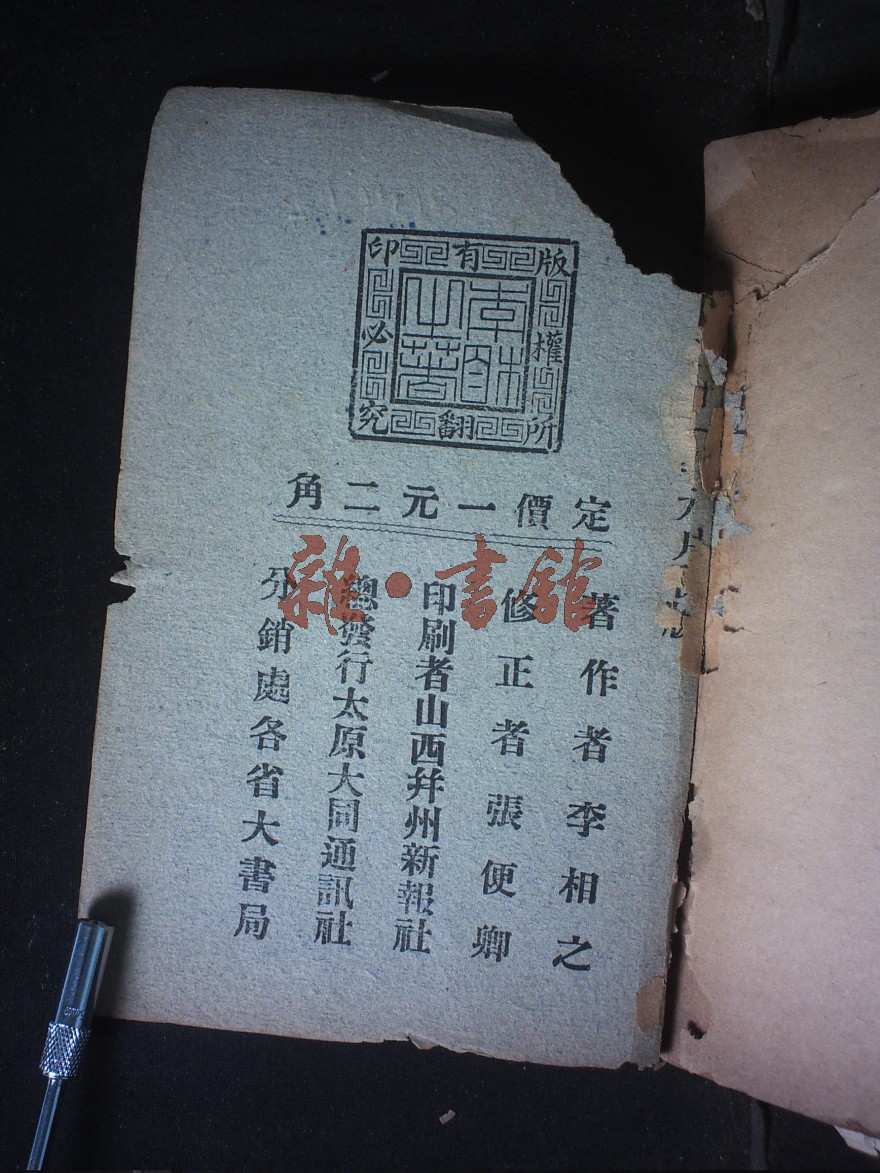 版權所有
翻印必究
李相之著
定價一元二角
著作者李相之
修正者張便卿
印刷者山西并州新報社
總發行太原大同通訊社
分銷處各省大書局
雜·書館